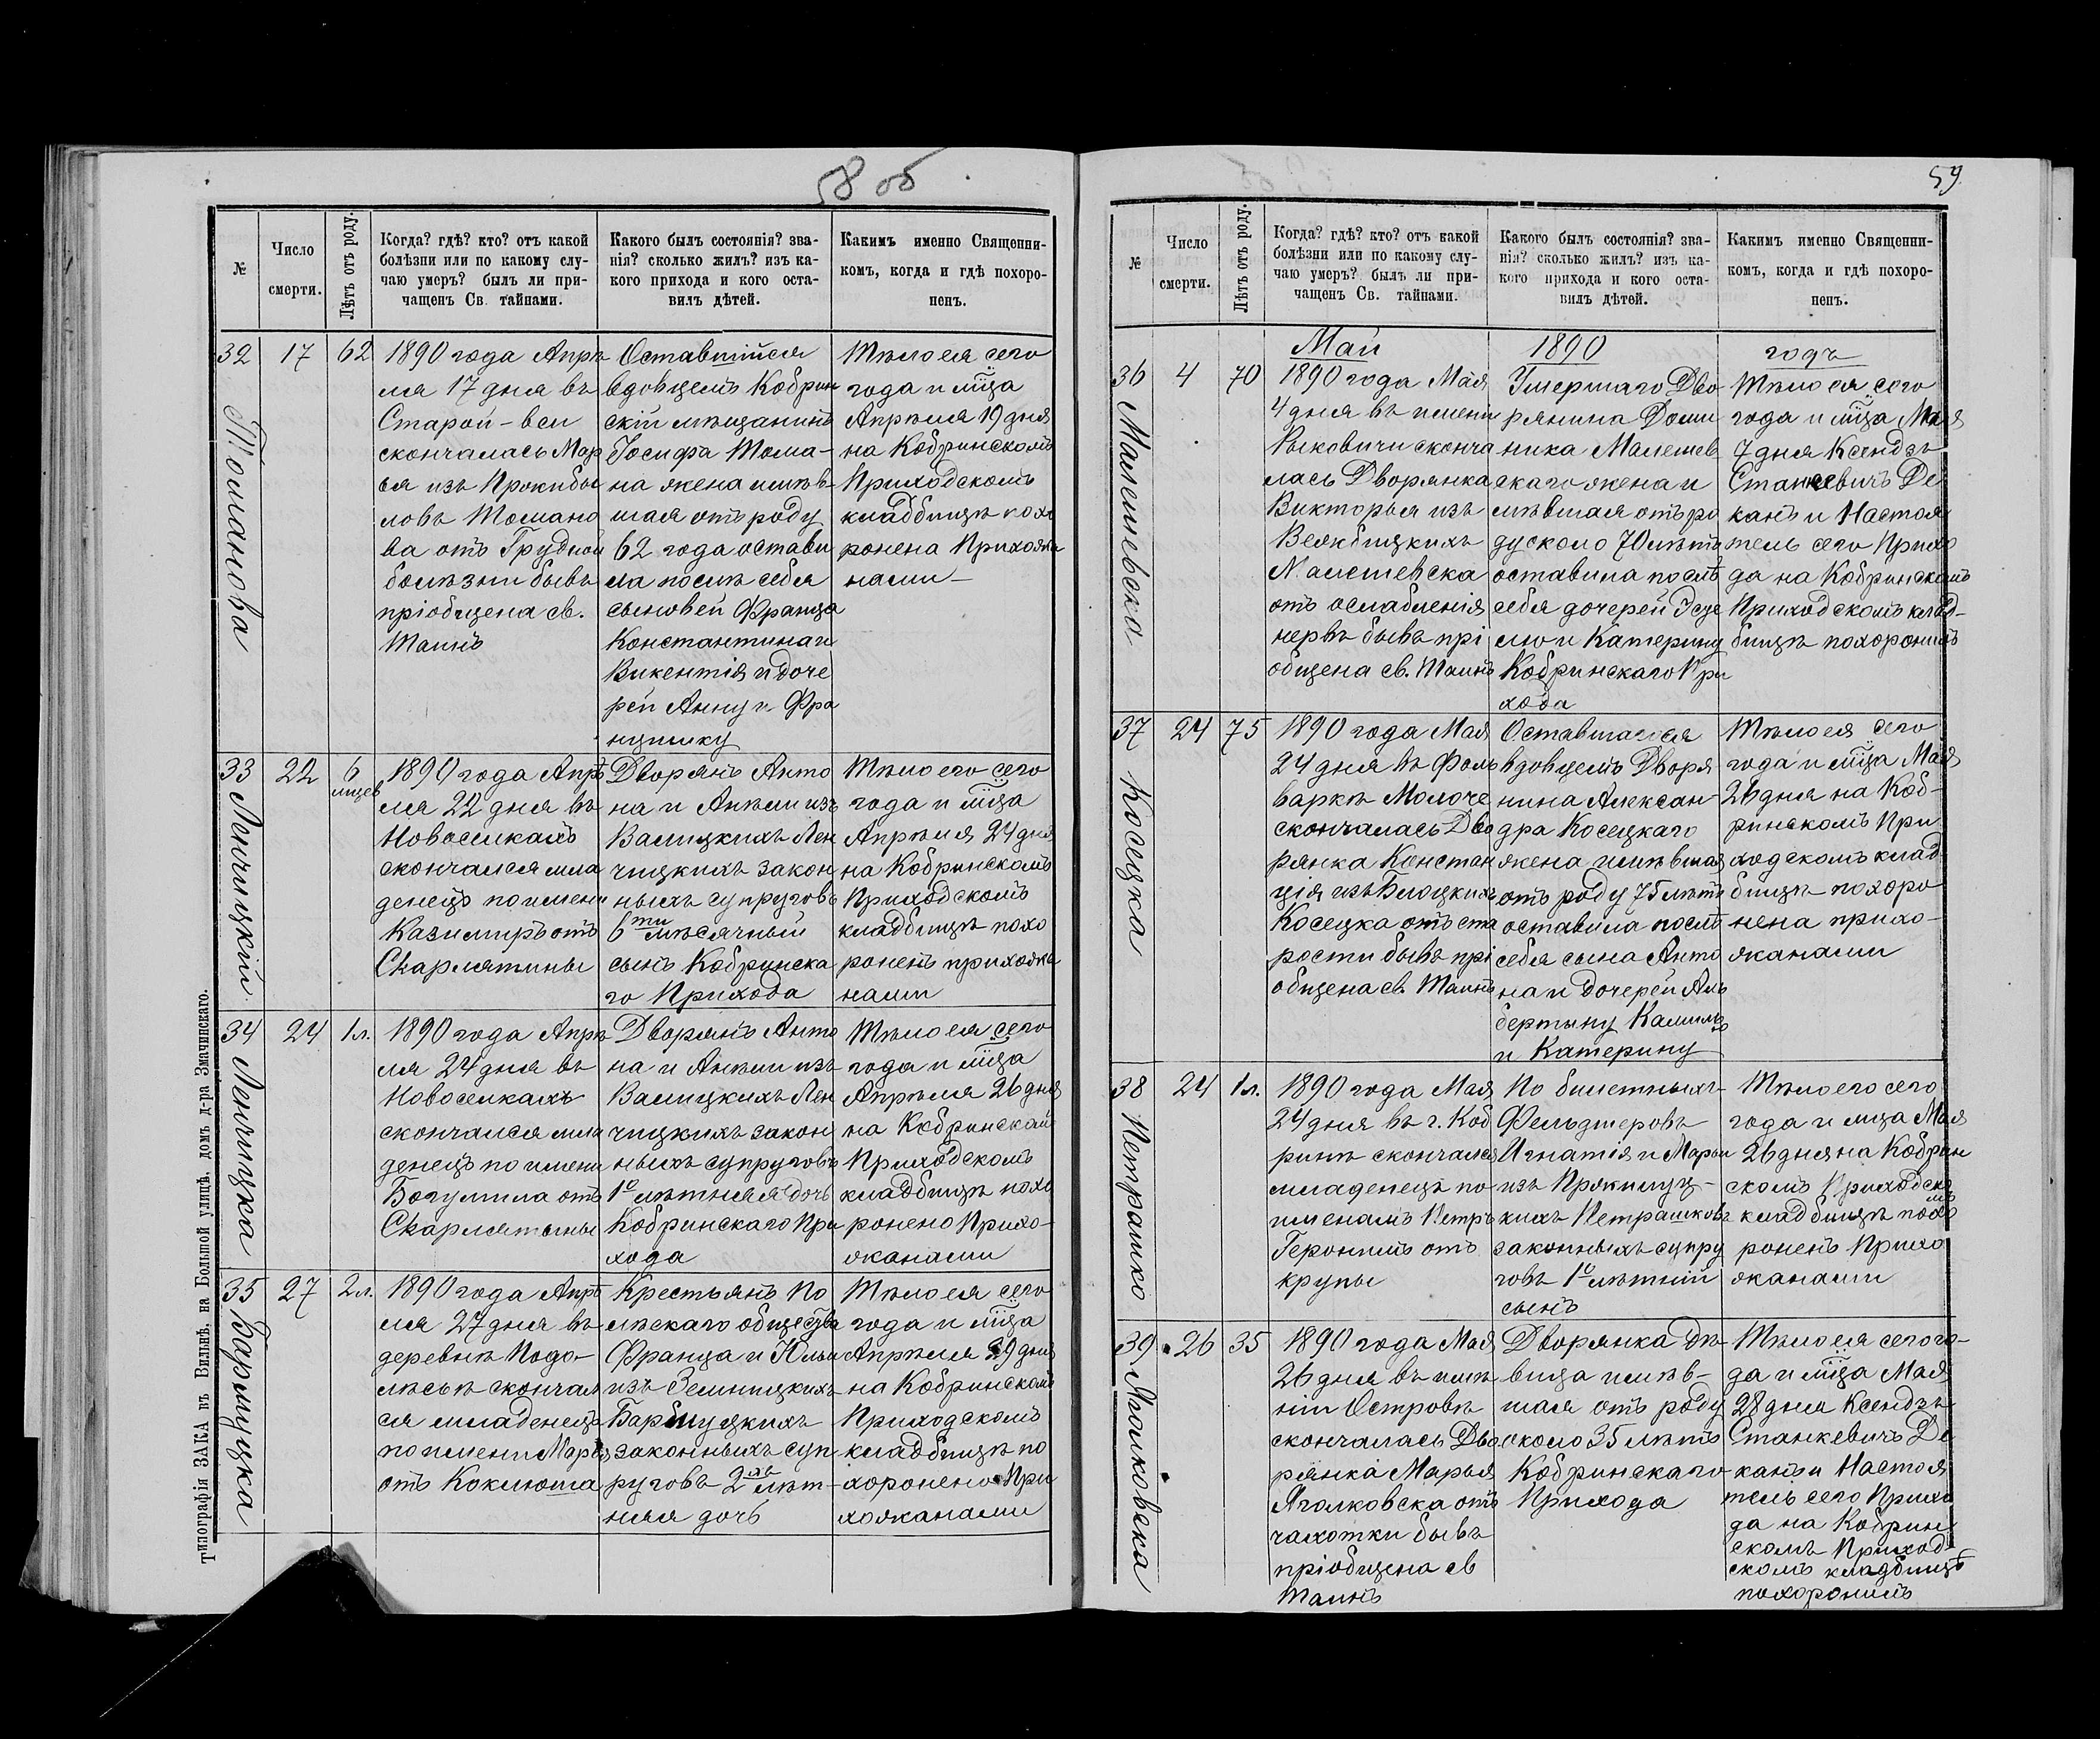 58 об
№
Число смерти.
Лѣтъ отъ роду.
Когда? гдѣ? кто? отъ какой
болѣзни или по какому слу-
чаю умеръ? былъ ли при-
чащенъ Св. тайнами.
Какого былъ состоянія? зва-
нія? сколько жилъ? изъ ка-
кого прихода и кого оста-
вилъ дѣтей.
Какимъ именно Священни-
комъ, когда и гдѣ похоро-
ненъ.
32
Томанова
17
62
1890 года Апрѣ
ля 17 дня въ
Старой-вси
скончалась Мар
ья изъ Прокибы
ловъ Томано
ва отъ Грудной
болѣзни бывъ
пріобщена св.
Таинъ
Оставшійся
вдовцемъ Кобрин
скій мѣщанинъ
Іосифа Тома-
на жена имѣв-
шая отъ роду
62 года остави
ла послѣ себя
сыновей Франца
Константина и
Викентія и доче
рей Анну и Фра
нцишку
Тѣло ея сего
года и мца
Апрѣля 19 дня
на Кобринскомъ
Приходскомъ
кладбищѣ похо
ронена Прихожа
нами-
33
Ленчицкій
22
6 мцев
1890 года Апрѣ
ля 22 дня въ
Новоселкахъ
скончался мла
денецъ по имени
Казимиръ отъ
Скарлятины
Дворянъ Анто
на и Анели изъ
Валицкихъ Лен
чицкихъ закон
ныхъ супруговъ
6ти мѣсячный
сынъ Кобринска
го Прихода
Тѣло его сего
года и мца
Апрѣля 24 дня
на Кобринскомъ
Приходскомъ
кладбищѣ похо
роненъ прихожа
нами
34
Ленчицка
24
1 л.
1890 года Апрѣ
ля 24 дня въ
Новоселкахъ
скончался мла
денецъ по имени
Богумила отъ
Скарлятыны
Дворянъ Анто
на и Анели изъ
Валицкихъ Лен
чицкихъ закон
ныхъ супруговъ
1о лѣтняя дочь
Кобринскаго При
хода
Тѣло ея сего
года и мца
Апрѣля 26 дня
на Кобринской
Приходскомъ
кладбищѣ похо
ронено Прихо-
жанами
35
Баршицка
27
2 л.
1890 года Апрѣ
ля 27 дня въ
деревнѣ Подо-
лѣсьѣ скончал
ся младенецъ
по имени Марья
отъ Коклюша
Крестьянъ По
лѣскаго общества
Франца и Юльи
изъ Зелницкихъ
Баршуцкихъ
законныхъ суп
руговъ 2хъ лѣт-
няя дочь
Тѣло ея сего
года и мца
Апрѣля 29 дня
на Кобринскомъ
Приходскомъ
кладбищѣ по
хоронено При
хожанами
Типографія ЗАКА въ Вильнѣ, на Большой улицѣ, домъ д-ра Змачинскаго.
59.
№
Число смерти.
Лѣтъ отъ роду.
Когда? гдѣ? кто? отъ какой
болѣзни или по какому слу-
чаю умеръ? былъ ли при-
чащенъ Св. тайнами.
Какого былъ состоянія? зва-
нія? сколько жилъ? изъ ка-
кого прихода и кого оста-
вилъ дѣтей.
Какимъ именно Священни-
комъ, когда и гдѣ похоро-
ненъ.
Май 1890 годъ
36
Малешевска
4
70
1890 года Мая
4 дня въ имѣніи
Рыковичи сконча
лась Дворянка
Викторья изъ
Велкбицкихъ
Малешевска
отъ ослабленія
нервъ бывъ прі
общена св. Таинъ
Умершаго Дво-
рянина Доми
ника Малешев
скаго жена и
мѣвшая отъ ро
ду около 70 лѣтъ
оставила послѣ
себя дочерей Эзе
лю и Катерину
Кобринскаго При
хода
Тѣло ея сего
года и мца Мая
7 дня Ксендзъ
Станкевичъ Де
канъ и Настоя
тель сего Прихо
да на Кобринскомъ
Приходскомъ клад-
бищѣ похоронилъ
37
Косецка
24
75
1890 года Мая
24 дня въ Фоль
варкѣ Молоче
скончалась Дво
рянка Констан
ція изъ Блоцкихъ
Косецка отъ ста
рости бывъ прі
общена св. Таинъ
Оставшагося
вдовцемъ Дворя
нина Алексан-
дра Косецкаго
жена имѣвшая
отъ роду 75 лѣтъ
оставила послѣ
себя сына Анто
на и дочерей Аль
бертыну Камилю
и Катерину
Тѣло ея сего
года и мца Мая
26 дня на Коб-
ринскомъ При
ходскомъ клад
бищѣ похоро
нена прихо-
жанами
38
Петрашко
24
1 л.
1890 года Мая
24 дня въ г. Коб
ринѣ скончался
младенецъ по
именамъ Петръ
Геронимъ отъ
крупы
По билетныхъ
Фельдшеровъ
Игнатія и Марьи
изъ Пряклуц-
кихъ Петрашковъ
законныхъ супру
говъ 1о лѣтній
сынъ
Тѣло его сего
года и мца Мая
26 дня на Кобрин
скомъ Приходско
мъ кладбищѣ похо
роненъ Прихо
жанами
39
Яголковска
26
35
1890 года Мая
26 дня въ имѣ
ніи Островѣ
скончалась Дво
рянка Марья
Яголковска отъ
чахотки бывъ
пріобщена св
Таинъ
Дворянка дѣ-
вица имѣв-
шая отъ роду
около 35 лѣтъ
Кобринскаго
Прихода
Тѣло ея сего го-
да и мца Мая
28 дня Ксендзъ
Станкевичъ Де
канъ и Настоя
тель сего Прихо
да на Кобрин
скомъ Приход
скомъ кладбищѣ
похоронилъ